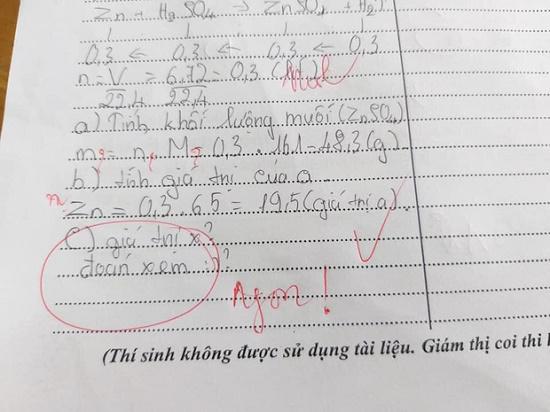 Zn + H2SO4 → ZnSO4 + H2↑
1 1 1 1
0,3 ← 0,3 ← 0,3 ← 0,3
n = V = 6,72 = 0,3 (
22,4 22,4
a) Tính khối lượng muối (ZnSO4)
m = n . M = 0,3 . 161 = 48,3 (g)
b) tính giá trị của a
m Zn = 0,3 . 65 = 19,5 (giá trị a)
c) giá trị x?
đoán xem :)?
Ngon!
(Thí sinh không được sử dụng tài liệu. Giám thị coi thi